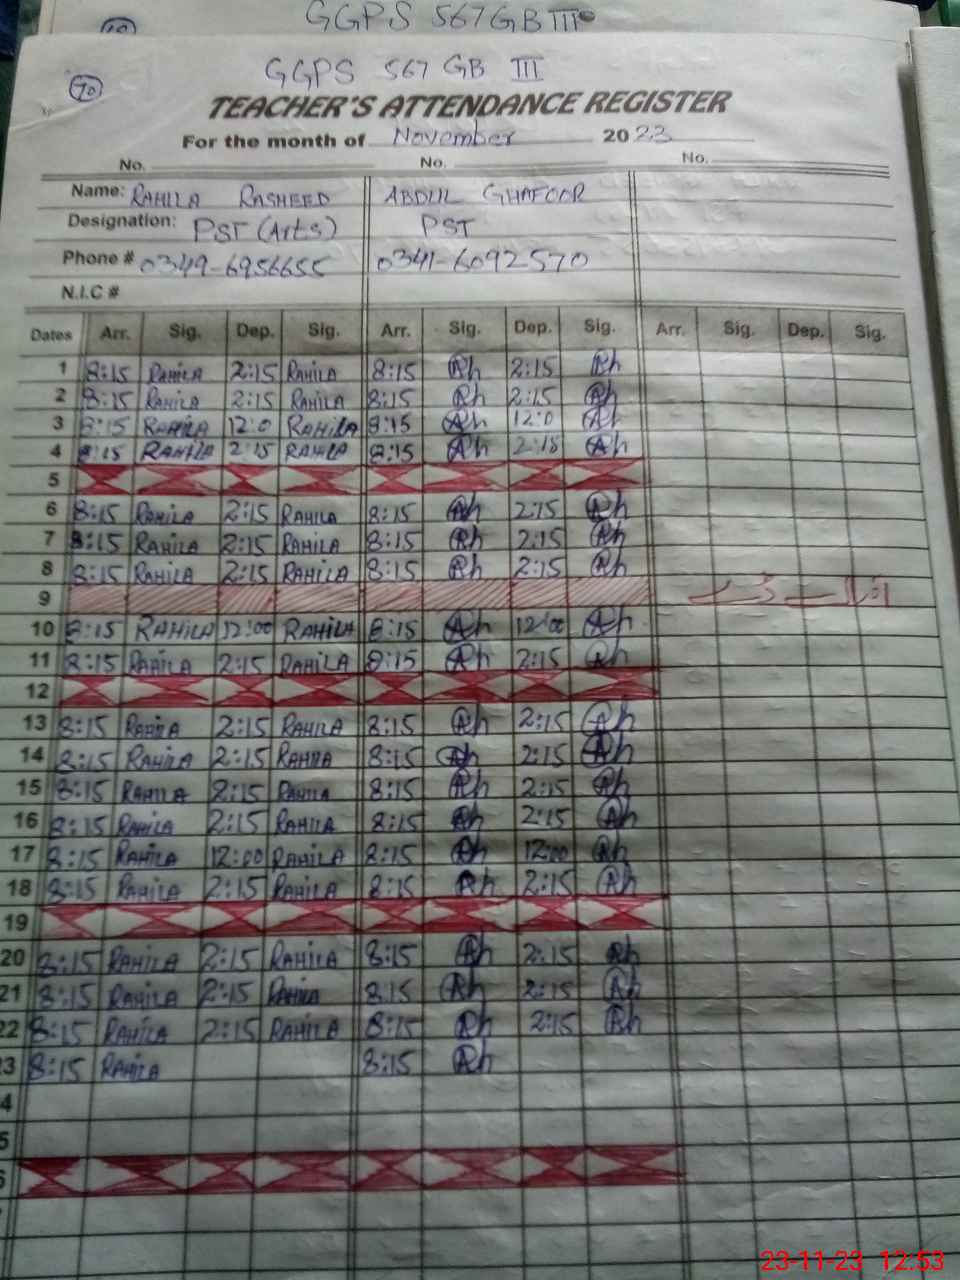 GGPS 567 GB III
GGPS 567 GB III
70
TEACHER'S ATTENDANCE REGISTER
For the month of November 2023
No. No. No.
Name: RAHILA RASHEED ABDUL GHAFOOR
Designation: PST (Arts) PST
Phone # 0349-6956655 0341-6092570
N.I.C #
Dates Arr. Sig. Dep. Sig. Arr. Sig. Dep. Sig. Arr. Sig. Dep. Sig.
1 8:15 RAHILA 2:15 RAHILA 8:15 Ah 2:15 Ah
2 8:15 RAHILA 2:15 RAHILA 8:15 Ah 2:15 Ah
3 8:15 RAHILA 12:0 RAHILA 8:15 Ah 12:0 Ah
4 8:15 RAHILA 2:15 RAHILA 8:15 Ah 2:15 Ah
5
6 8:15 RAHILA 2:15 RAHILA 8:15 Ah 2:15 Ah
7 8:15 RAHILA 2:15 RAHILA 8:15 Ah 2:15 Ah
8 8:15 RAHILA 2:15 RAHILA 8:15 Ah 2:15 Ah
9 اقبال ڈے
10 8:15 RAHILA 12:00 RAHILA 8:15 Ah 12:00 Ah
11 8:15 RAHILA 2:15 RAHILA 8:15 Ah 2:15 Ah
12
13 8:15 RAHILA 2:15 RAHILA 8:15 Ah 2:15 Ah
14 8:15 RAHILA 2:15 RAHILA 8:15 Ah 2:15 Ah
15 8:15 RAHILA 2:15 RAHILA 8:15 Ah 2:15 Ah
16 8:15 RAHILA 2:15 RAHILA 8:15 Ah 2:15 Ah
17 8:15 RAHILA 12:00 RAHILA 8:15 Ah 12:00 Ah
18 8:15 RAHILA 2:15 RAHILA 8:15 Ah 2:15 Ah
19
20 8:15 RAHILA 2:15 RAHILA 8:15 Ah 2:15 Ah
21 8:15 RAHILA 2:15 RAHILA 8:15 Ah 2:15 Ah
22 8:15 RAHILA 2:15 RAHILA 8:15 Ah 2:15 Ah
3 8:15 RAHILA 8:15 Ah
4
5
6
23-11-23 12:53